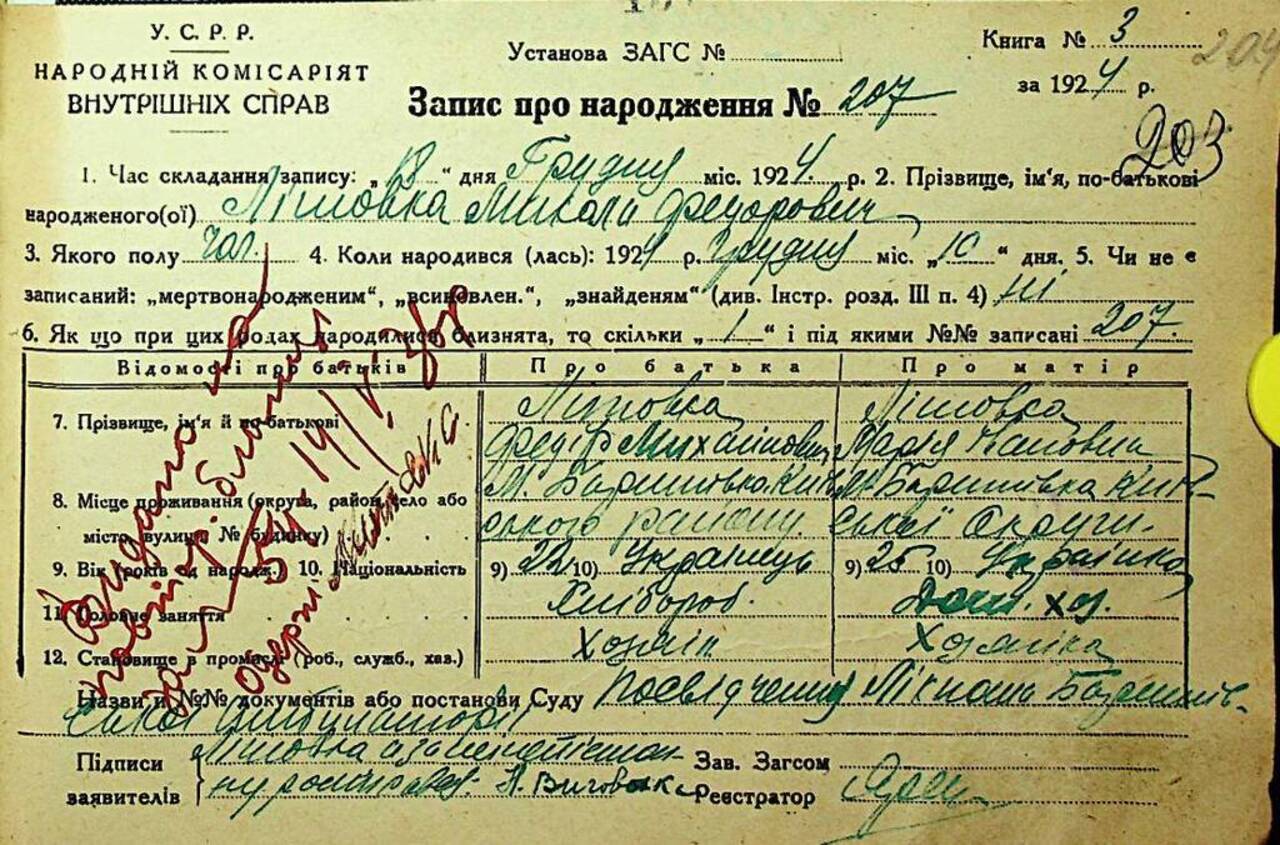 У. С. Р. Р.
НАРОДНІЙ КОМІСАРІЯТ
ВНУТРІШНІХ СПРАВ
Установа ЗАГС №
Книга № 3
204
за 1924 р.
Запис про народження № 207
203
1. Час складання запису: „18“ дня Грудня міс. 1924 р. 2. Прізвище, ім'я, по-батькові
народженого(ої) Микола Федорович
3. Якого полу чол. 4. Коли народився (лась): 1924 р. Грудня міс. „10“ дня. 5. Чи не є
записаний: „мертвонародженим“, „всиновлен.“, „знайденям“ (див. Інстр. розд. III п. 4) ні
6. Як що при цих родах народились близнята, то скільки „1“ і під якими №№ записані 207
Відомості про батьків Про батька Про матір
7. Прізвище, ім'я й по-батькові
Федір Михайлович Марія Івановна
8. Місце проживання (округа, район, село або
місто, вулиця № будинку)
М. Баришівка Київ М. Баришівка Київ-
ського району. ської Округи.
9. Вік (років од народж.) 10. Національність 9) 22 10) Українець 9) 25 10) Українка
11. Головне заняття Хлібороб. Дом. хоз.
12. Становище в промислі (роб., служб., хаз.) Хозяїн Хозяйка
Назви й №№ документів або постанови Суду Посвідчення Баришів-
ської
Підписи
заявителів
Зав. Загсом
Реєстратор
Видано
14/V